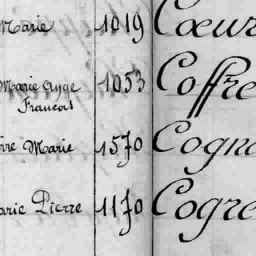 Marie 1019 Cœur
Marie Ange 1053 Coffre
François
Marie 1570 Cogn
Pierre 1170 Cogre